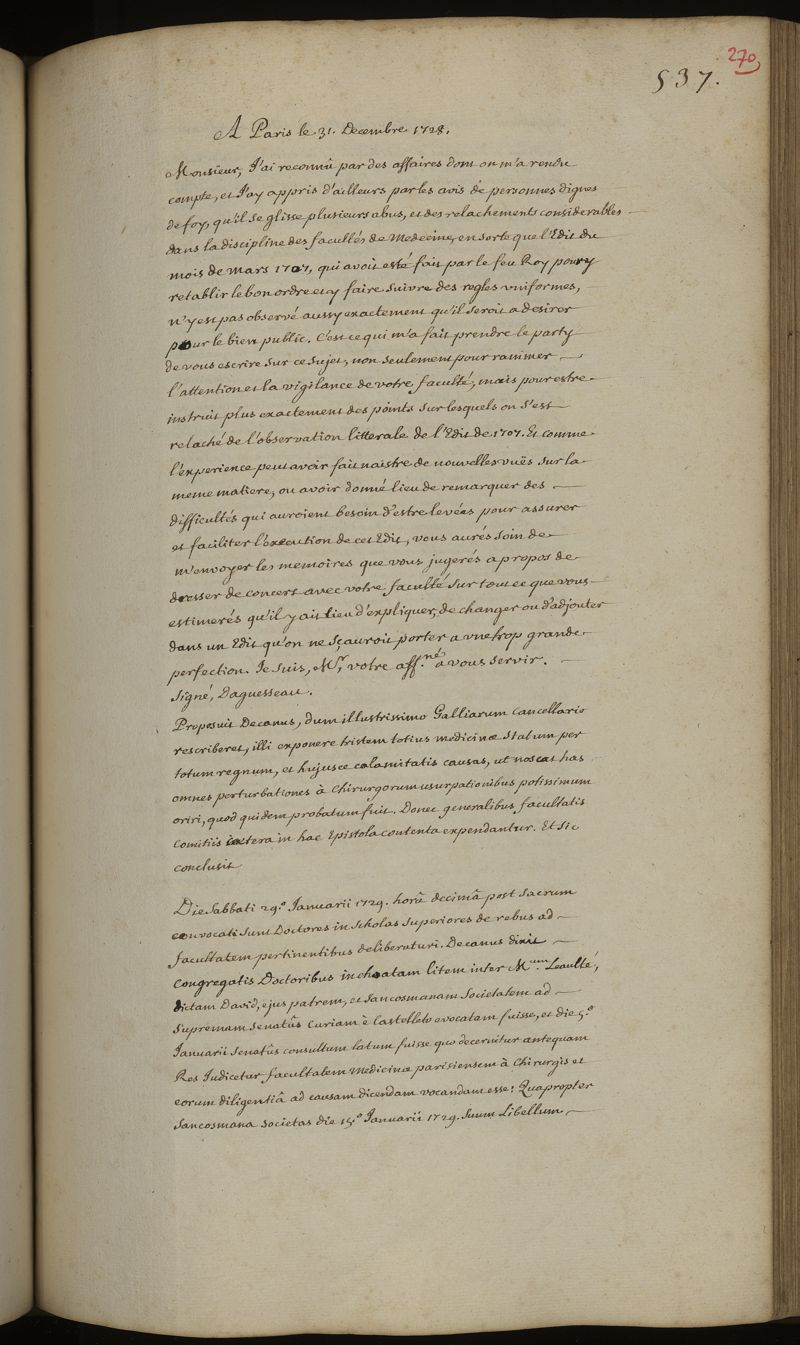 270
537.
A Paris le 31. Decembre 1728.
Monsieur, J'ai reconnû par des affaires dont on m'a rendu
compte, et J'ay appris d'ailleurs par les avis de personnes dignes
de foy, qu'il se glisse plusieurs abus, et des relachements considerables
dans la discipline des facultés de Medecine, en sorte que l'Edit du
mois de Mars 1707, qui avoit esté fait par le feu Roy pour y
retablir le bon ordre et y faire suivre des regles uniformes,
n'y est pas observé aussy exactement qu'il seroit a desirer
pour le bien public. C'est ce qui m'a fait prendre le party
de vous escrire sur ce sujet, non seulement pour ranimer
l'attention et la vigilance de votre faculté, mais pour estre
instruit plus exactement des points sur lesquels on s'est
relaché de l'observation litterale de l'Edit de 1707. Et comme
l'experience peut avoir fait naistre de nouvelles vuës sur la
meme matiere, ou avoir donné lieu de remarquer des
difficultés qui auroient besoin d'estre levées pour assurer
et faciliter l'execution de cet Edit, vous aurés soin de
m'envoyer les memoires que vous jugerés a propos de
dresser de concert avec votre faculté sur tout ce que vous
estimerés qu'il y ait lieu d'expliquer, de changer ou d'adjouter
dans un Edit qu'on ne sçauroit porter a vne trop grande
perfection. Je suis, Mr, votre aff.né a vous servir.
Signé, Daguesseau.
Proposuit Decanus, dum illustrissimo Galliarum Cancellario
rescriberet, illi exponere tristem totius medicinæ Statum per
totum regnum, et hujusce calamitatis causas, ut noscat has
omnes perturbationes à Chirurgorum usurpationibus potissimum
oriri, quod quidem probatum fuit. Donec generalibus facultatis
Comitiis cætera in hac Epistola contenta expendantur. Et sic
conclusit
Die Sabbati 29.ª Januarii 1729. horâ decimâ post Sacrum
convocati sunt Doctores in Scholas Superiores de rebus ad
facultatem pertinentibus deliberaturi. Decanus dixit
Congregatis Doctoribus inchoatam litem inter M.um Leaulté,
dictam David, ejus patrem, et Sancosmanam Societatem ad
Supremam Senatûs Curiam è Castelleto evocatam fuisse, et die 5.ª
Januarii Senatûs consultum latum fuisse quo decernitur antequam
Res Judicetur facultatem Medicinæ parisiensem à Chirurgis et
eorum diligentiâ ad causam dicendam vocandam esse: Quapropter
Sancosmana Societas die 15.ª Januarii 1729. Suum Libellum